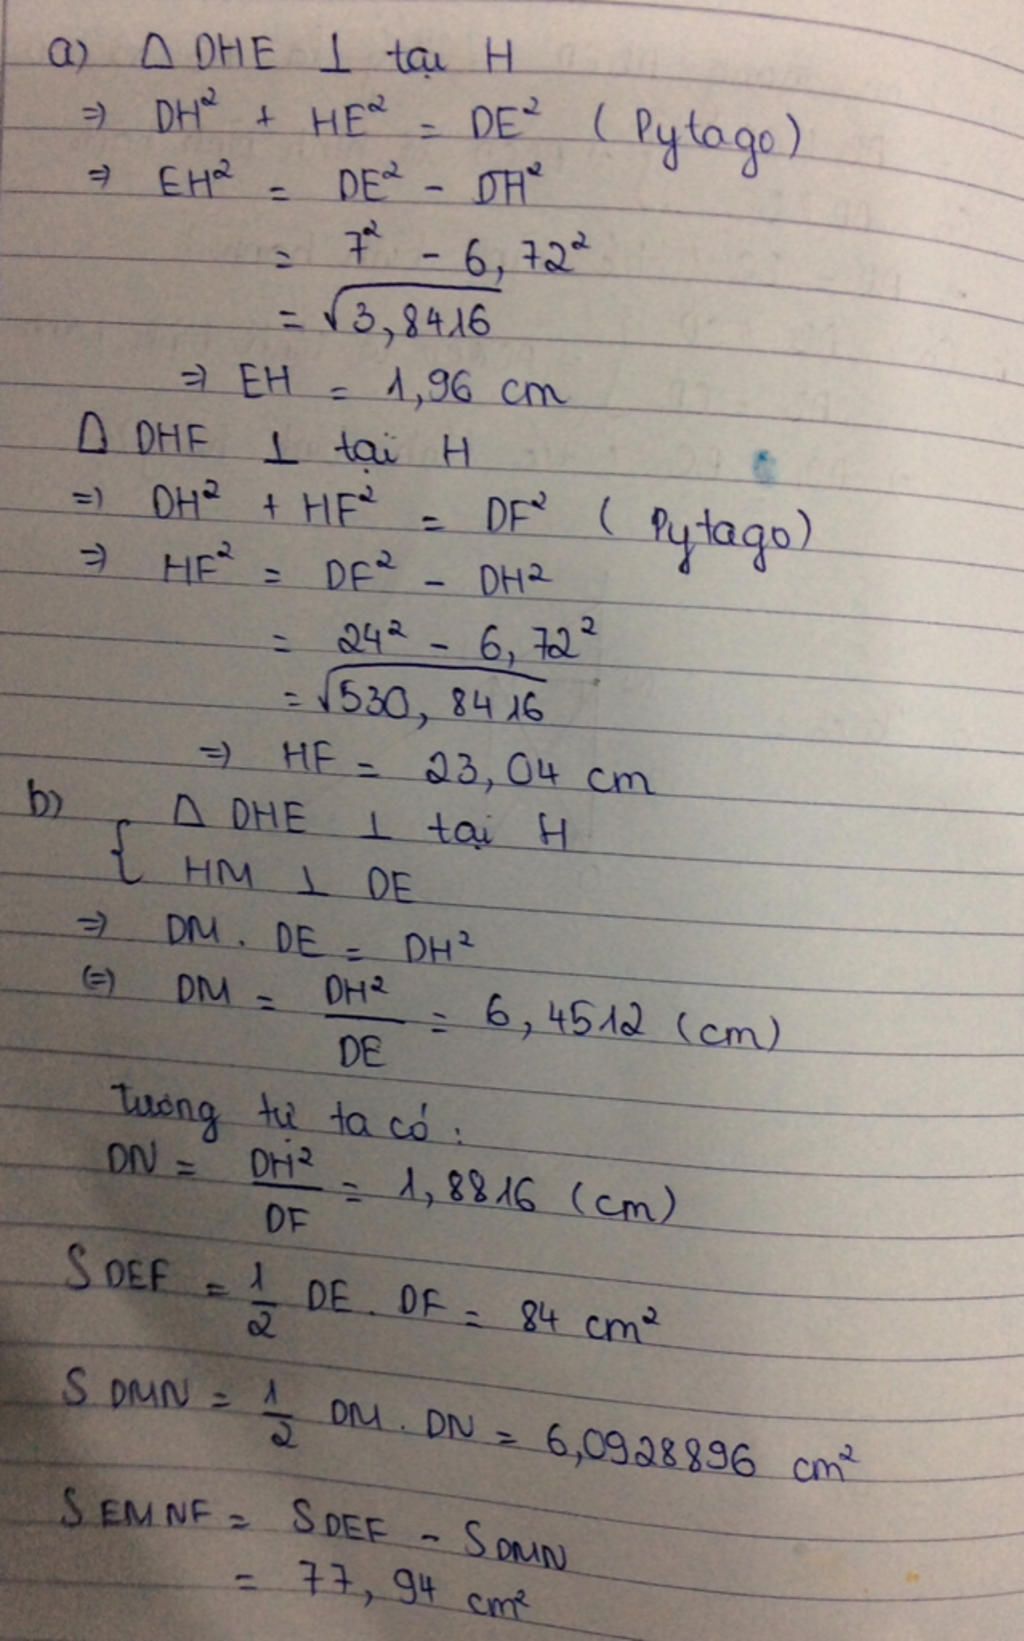 a) Δ DHE ⊥ tại H
⇒ DH² + HE² = DE² (Pytago)
⇒ EH² = DE² - DH²
= 7² - 6,72²
= √3,8416
⇒ EH = 1,96 cm
Δ DHF ⊥ tại H
⇒ DH² + HF² = DF² (Pytago)
⇒ HF² = DF² - DH²
= 24² - 6,72²
= √530,8416
⇒ HF = 23,04 cm
b) { Δ DHE ⊥ tại H
HM ⊥ DE
⇒ DM . DE = DH²
(=) DM = DH²/DE = 6,4512 (cm)
Tương tự ta có :
DN = DH²/DF = 1,8816 (cm)
S DEF = 1/2 DE . DF = 84 cm²
S DMN = 1/2 DM . DN = 6,0928896 cm²
S EMNF = S DEF - S DMN
= 77,94 cm²